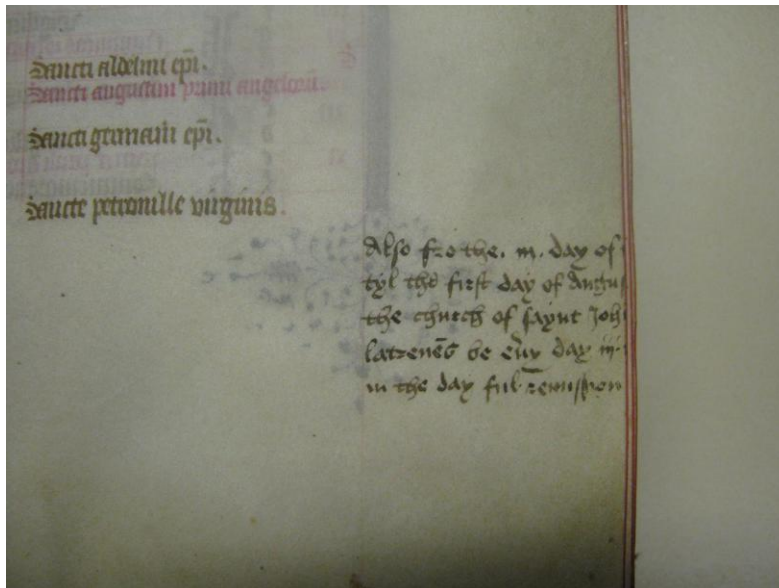 Sancti aldelmi epi.
Sancti augustini primi anglorum.
Sancti germani epi.
Sancte petronille virginis.
Also fro the . m . day of
tyl the first day of Augus
the church of saynt Joh
be euy day iij
in the day ful remission